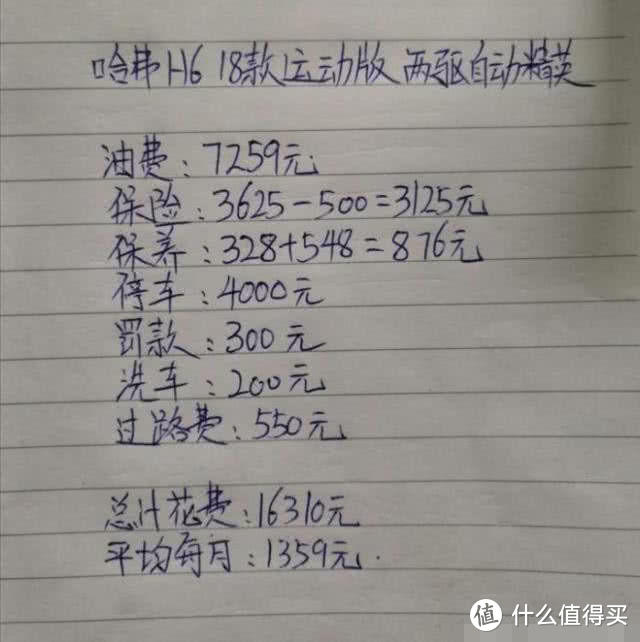 哈弗H6 18款运动版 两驱自动精英
油费：7259元
保险：3625-500=3125元
保养：328+548=876元
停车：4000元
罚款：300元
洗车：200元
过路费：550元
总计花费：16310元
平均每月：1359元.
值 什么值得买